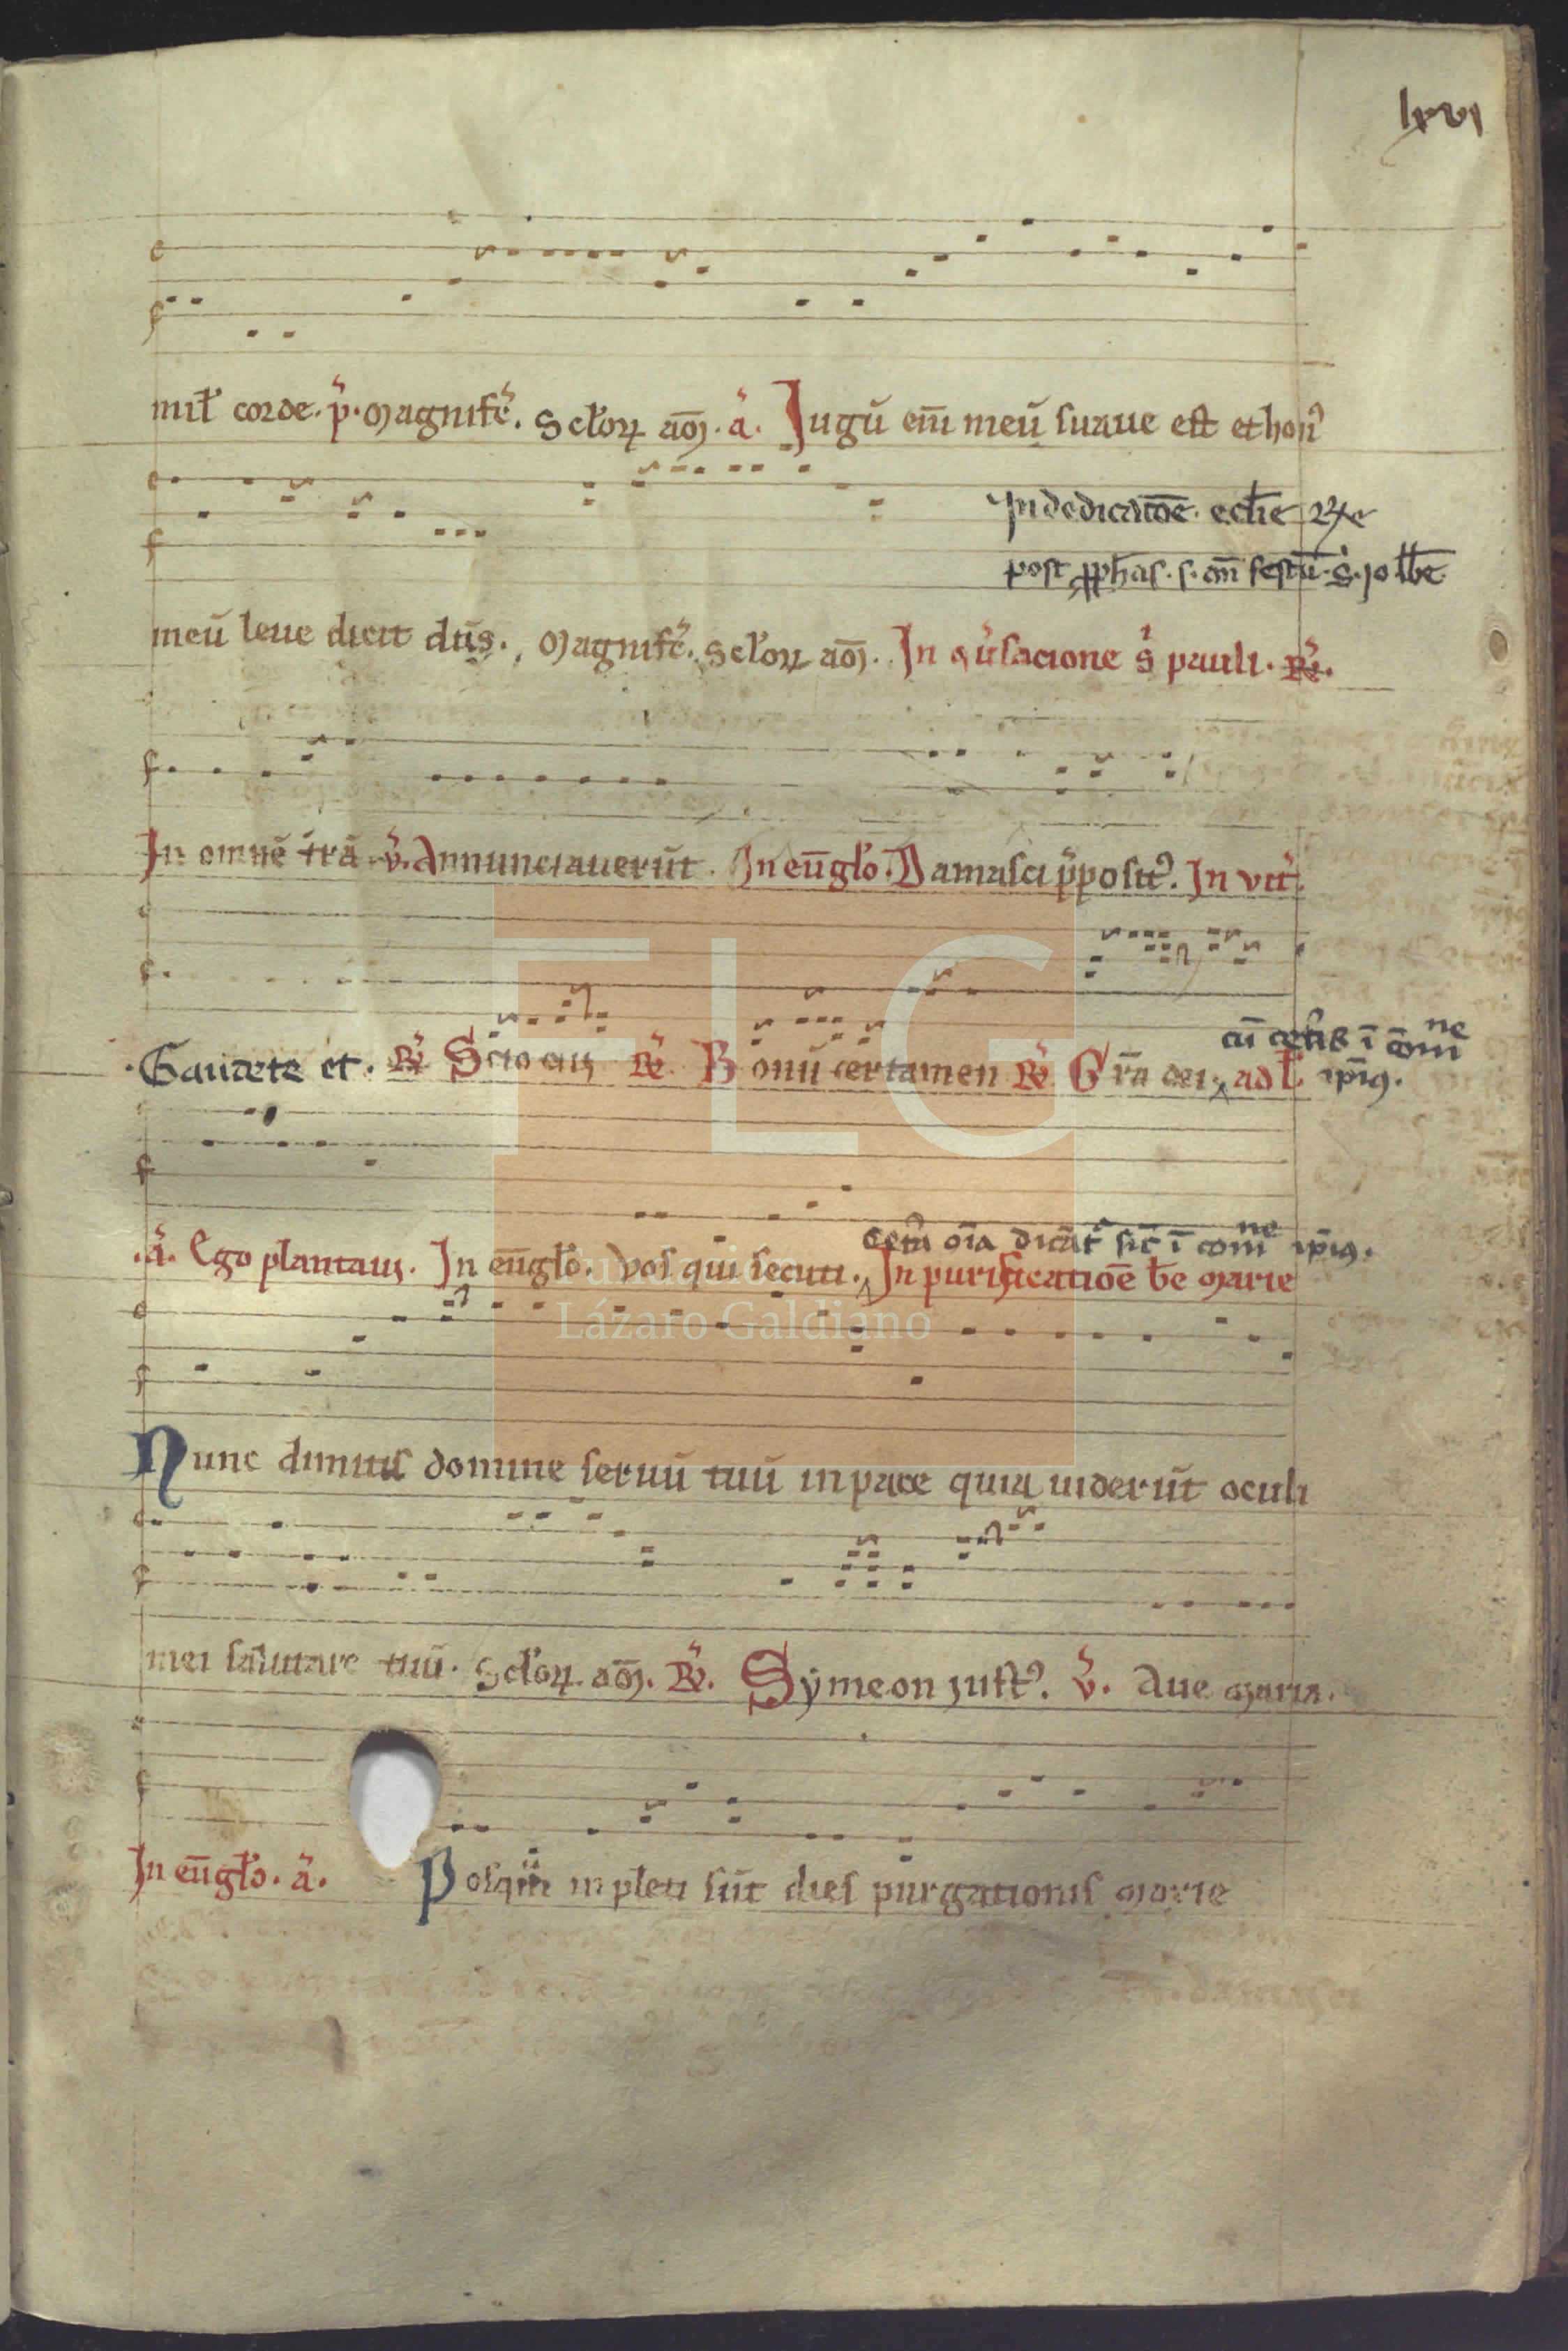 lxvi
mil̄ corde. p̄. Magnifc̄. Sc̄loꝝ am̄. a͛. Jugū em̄ meū suaue est et honꝰ
In dedicatōe ecl̄ie
post ꝓph̄as. s. om̄ festū. S.
meū leue dicit dn̄s. Magnifc̄. Sc̄loꝝ am̄. In ꝯu͛sacione s͛ pauli. R͛.
In omnē t͛rā v͛. Annunciauerūt. In eu̅gl̄o. Damasci p͛positꝰ. In vit͛.
cū cet͛is ī com̄ne
Gaudete et. R͛ Scio cui R͛ Bonū certamen R͛ Gr̄a dei ‸ ad l̄. ip̄iꝰ.
cet͛a oīa dicāt͛ sic̄ ī com̄ne ip̄iꝰ.
a͛. Ego plantaui. In eu̅gl̄o. Vos qui secuti. ‸ In purificatiōe b̄e Marie
FLG
Lázaro Galdiano
Nunc dimittis domine seruū tuū in pace quia uiderūt oculi
mei salutare tuū. Sc̄loꝝ am̄. R͛. Sẏmeon iustꝰ. v͛. Aue Maria.
In eu̅gl̄o. a͛. Posqm̄ inpleti sūt dies purgationis Marie